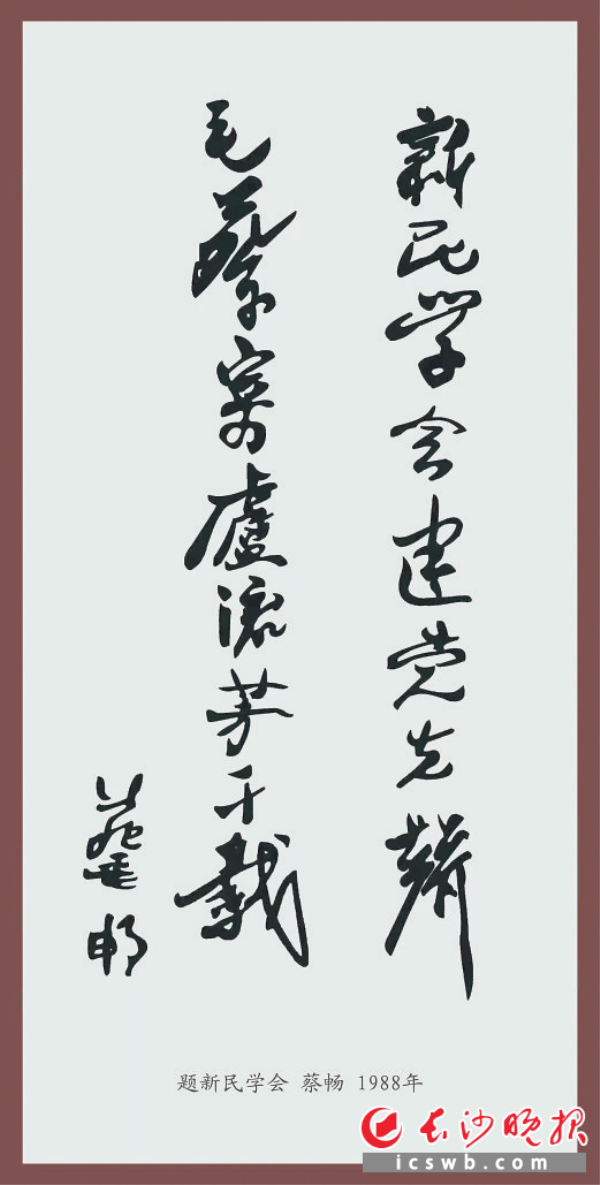 新民学会建党先聲
毛蔡寄廬流芳千載
蔡畅
题新民学会 蔡畅 1988年
长沙晚报
icswb.com